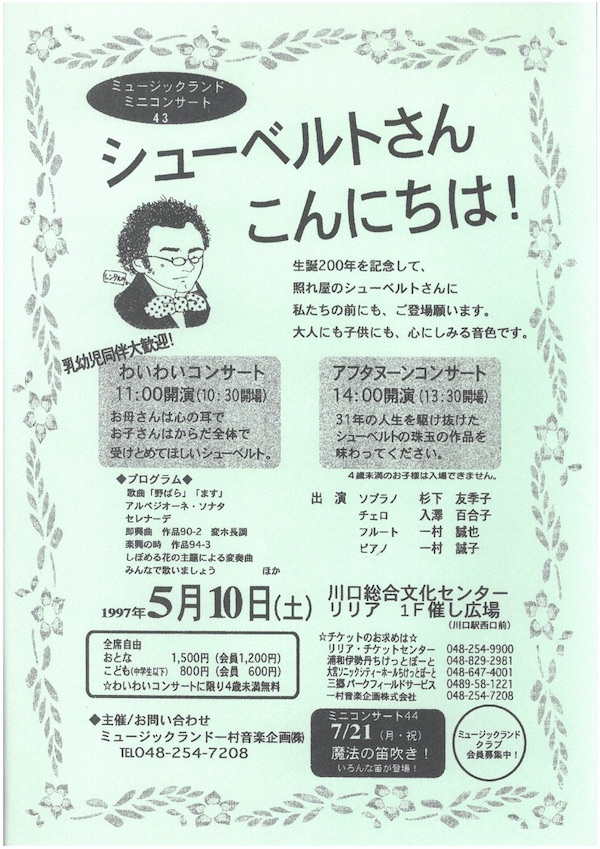 ミュージックランド
ミニコンサート
43
シューベルトさん
こんにちは!
生誕200年を記念して、
照れ屋のシューベルトさんに
私たちの前にも、ご登場願います。
大人にも子供にも、心にしみる音色です。
乳幼児同伴大歓迎!
わいわいコンサート
11:00開演(10:30開場)
お母さんは心の耳で
お子さんはからだ全体で
受けとめてほしいシューベルト。
アフタヌーンコンサート
14:00開演(13:30開場)
31年の人生を駆け抜けた
シューベルトの珠玉の作品を
味わってください。
4歳未満のお子様は入場できません。
◆プログラム◆
歌曲「野ばら」「ます」
アルペジオーネ・ソナタ
セレナーデ
即興曲 作品90-2 変ホ長調
楽興の時 作品94-3
しぼめる花の主題による変奏曲
みんなで歌いましょう ほか
出 演 ソプラノ 杉下 友季子
チェロ 入澤 百合子
フルート 一村 誠也
ピアノ 一村 誠子
1997年5月10日(土)
川口総合文化センター
リリア 1F催し広場
(川口駅西口前)
全席自由
おとな 1,500円(会員1,200円)
こども(中学生以下) 800円(会員 600円)
☆わいわいコンサートに限り4歳未満無料
☆チケットのお求めは☆
リリア・チケットセンター 048-254-9900
浦和伊勢丹ちけっとぽーと 048-829-2981
大宮ソニックシティーホールちけっとぽーと 048-647-4001
三郷パークフィールドサービス 0489-58-1221
一村音楽企画株式会社 048-254-7208
◆主催/お問い合わせ
ミュージックランド一村音楽企画㈱
TEL048-254-7208
ミニコンサート44
7/21(月・祝)
魔法の笛吹き!
いろんな笛が登場!
ミュージックランド
クラブ
会員募集中!